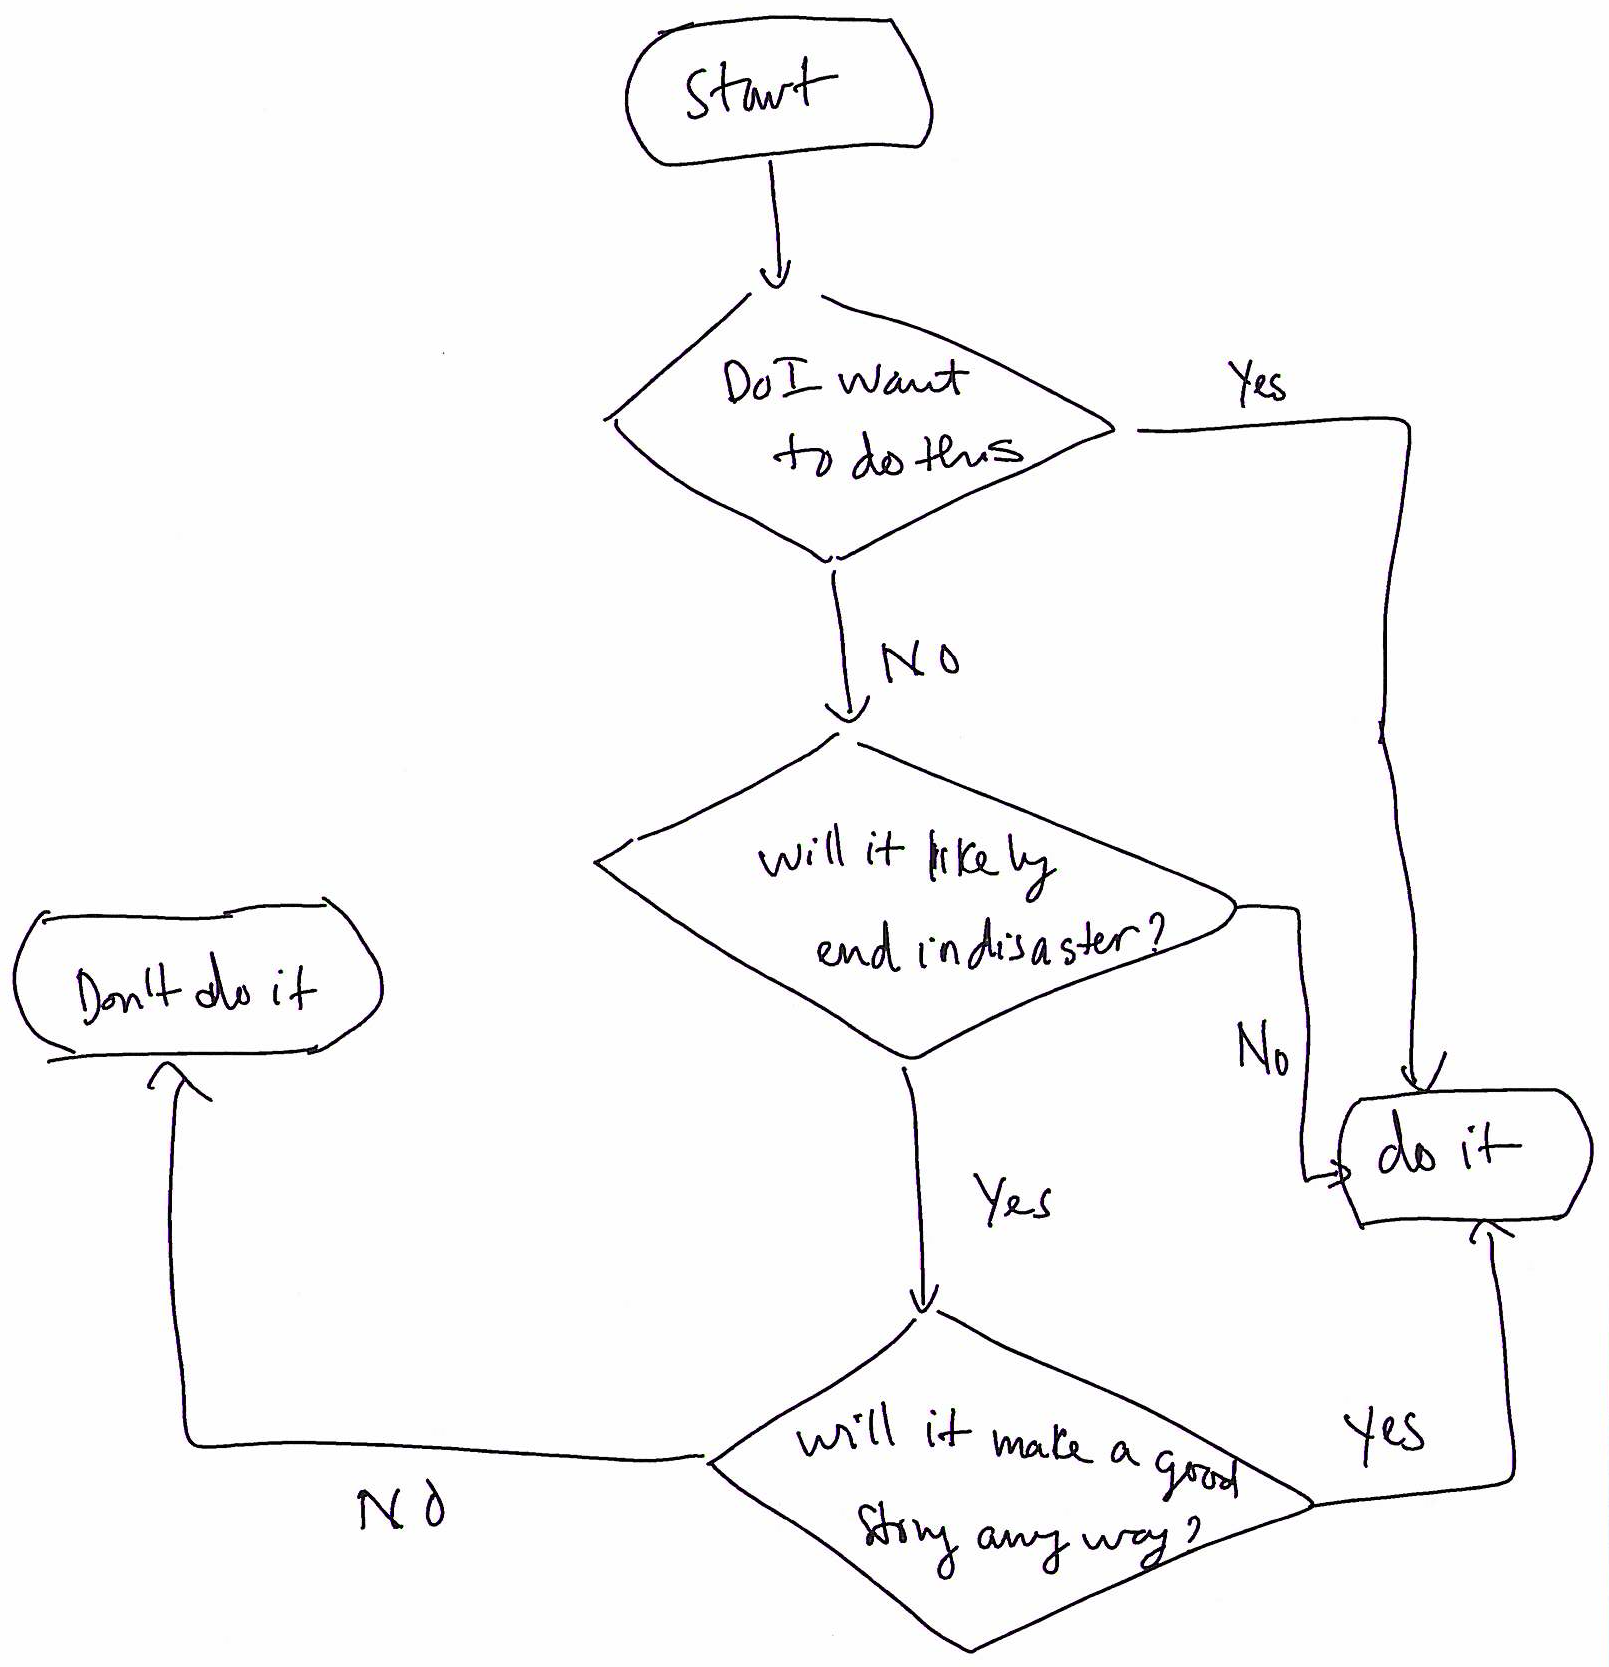 Start
Do I want
to do this
Yes
No
will it likely
end in disaster?
Don't do it
No
do it
Yes
will it make a good
story any way?
Yes
No